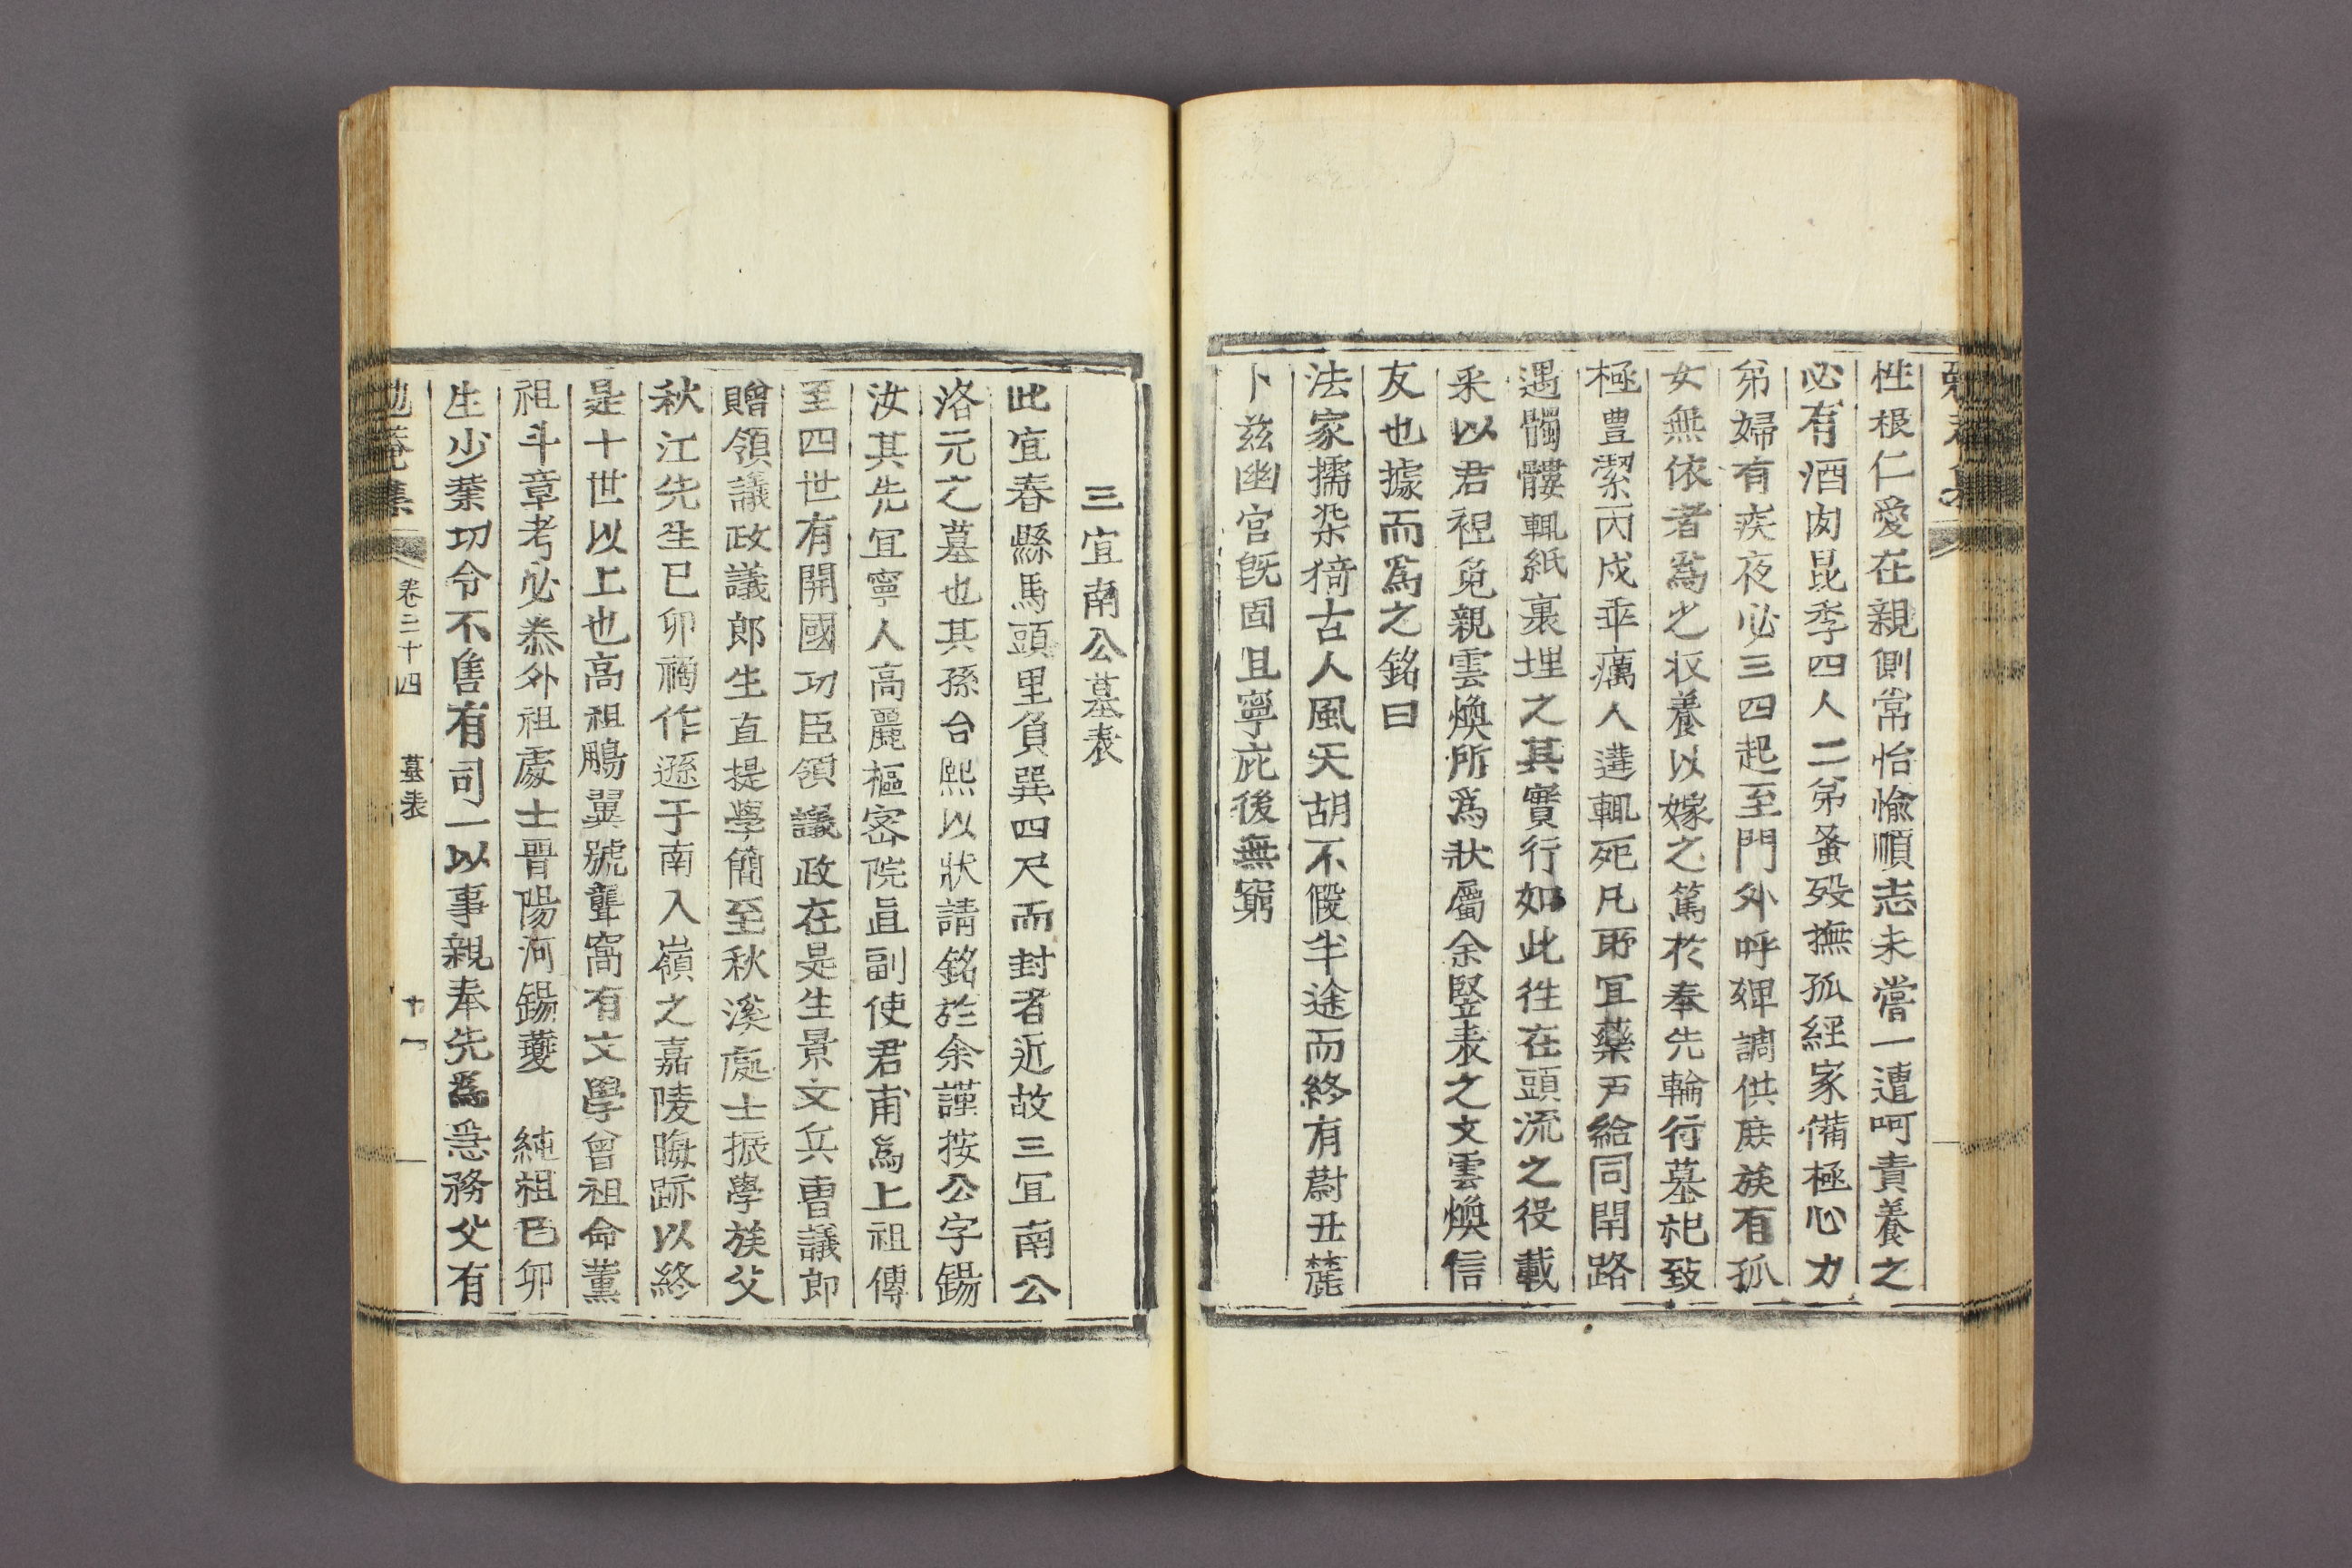 性根仁愛在親側常怡愉順志未嘗一遭呵責養之
必有酒肉昆季四人二弟蚤歿撫孤經家備極心力
弟婦有疾夜必三四起至門外呼婢調供庶族有孤
女無依者爲之收養以嫁之篤於奉先輪行墓祀致
極豊潔丙戌乖癘人遘輒死凡所宜藥戸給同閈路
遇髑髏輒紙裹埋之其實行如此徃在頭流之役載
釆以君袒免親雲煥所爲狀屬余竪表之文雲煥信
友也據而爲之銘曰
法家擩染猗古人風天胡不假半途而終有蔚丑麓
卜玆幽宮旣固且寧庇後無窮
三宜南公墓表
此宜春縣馬頭里負巽四尺而封者近故三宜南公
洛元之墓也其孫台熙以狀請銘於余謹按公字錫
汝其先宜寧人高麗樞密院直副使君甫爲上祖傳
至四世有開國功臣領議政在是生景文兵曹議郎
贈領議政議郎生直提學簡至秋溪處士振學族父
秋江先生己卯禍作遯于南入嶺之嘉陵晦跡以終
是十世以上也高祖鵬翼號聾窩有文學曾祖命薰
祖斗章考必㳟外祖處士晋陽河錫夔 純祖己卯
生少業功令不售有司一以事親奉先爲急務父有
勉菴集 卷三十四 墓表 十一